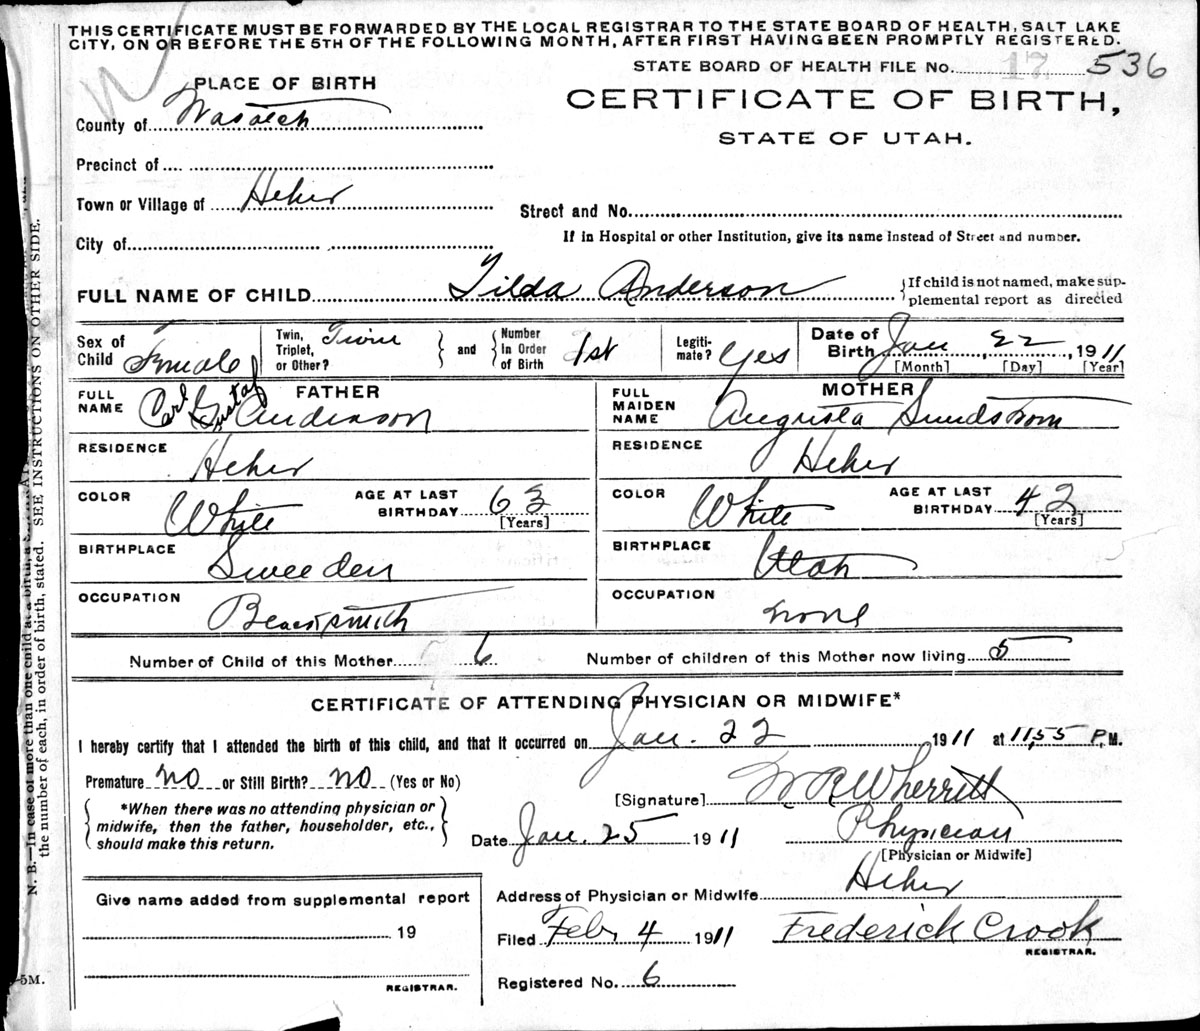 THIS CERTIFICATE MUST BE FORWARDED BY THE LOCAL REGISTRAR TO THE STATE BOARD OF HEALTH, SALT LAKE
CITY, ON OR BEFORE THE 5TH OF THE FOLLOWING MONTH, AFTER FIRST HAVING BEEN PROMPTLY REGISTERED.
STATE BOARD OF HEALTH FILE No. 17 536
PLACE OF BIRTH
CERTIFICATE OF BIRTH,
STATE OF UTAH.
County of Wasatch
Precinct of
Town or Village of Heber
Street and No.
City of
If in Hospital or other Institution, give its name instead of Street and number.
FULL NAME OF CHILD Tilda Anderson
If child is not named, make sup-
plemental report as directed
Sex of Child Female
Twin, Triplet, or Other? Twin
and Number In Order of Birth 1st
Legiti-mate? Yes
Date of Birth Jan 22, 1911
[Month] [Day] [Year]
FATHER
FULL NAME Carl Gustaf Anderson
RESIDENCE Heber
COLOR White AGE AT LAST BIRTHDAY 63
[Years]
BIRTHPLACE Sweeden
OCCUPATION Blacksmith
MOTHER
FULL MAIDEN NAME Augusta Sundstrom
RESIDENCE Heber
COLOR White AGE AT LAST BIRTHDAY 42
[Years]
BIRTHPLACE Utah
OCCUPATION None
Number of Child of this Mother 6 Number of children of this Mother now living 5
CERTIFICATE OF ATTENDING PHYSICIAN OR MIDWIFE*
I hereby certify that I attended the birth of this child, and that it occurred on Jan. 22 1911 at 11,55 P.M.
Premature no or Still Birth? no (Yes or No)
*When there was no attending physician or
midwife, then the father, householder, etc.,
should make this return.
[Signature] W R Wherritt
Date Jan. 25 1911 Physician
[Physician or Midwife]
Address of Physician or Midwife Heber
Give name added from supplemental report
19
REGISTRAR.
Filed Feb, 4 1911 Frederick Crook
REGISTRAR.
Registered No. 6
N. B.—In case of more than one child at a birth, a
the number of each, in order of birth, stated. SEE INSTRUCTIONS ON OTHER SIDE.
5M.